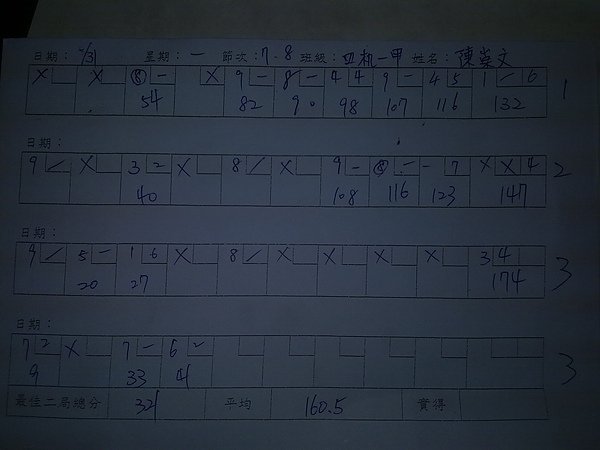 日期： 1/31 星期：一 節次：7.8 班級：四机一甲 姓名：陳
X X ⑧ - X 9 - 8 - 4 4 9 - 4 5 1 / 6
54 82 90 98 107 116 132 1
日期：
9 / X 3 2 X 8 / X 9 - ⑧ - - 7 X X 4 2
40 108 116 123 147
日期：
9 / 5 - 1 6 X 8 / X X X X 3 4 3
20 27 174
日期：
7 2 X 7 - 6 2 3
9 33 41
最佳二局總分 321 平均 160.5 實得